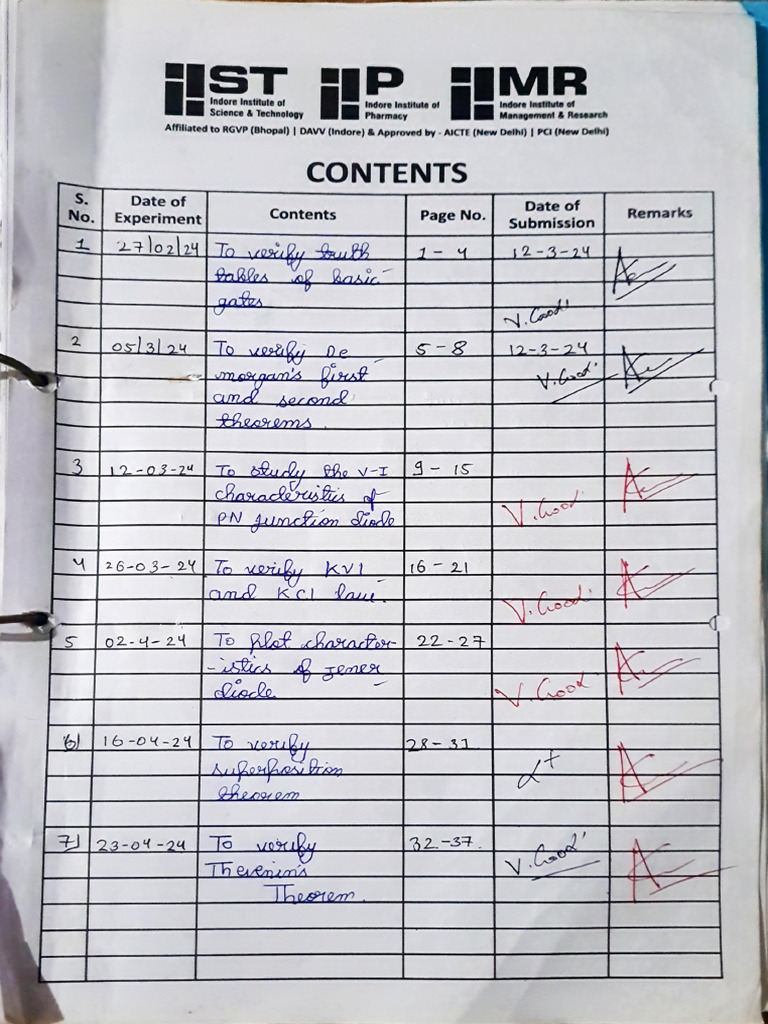 IIST IIP IIMR
Indore Institute of Science & Technology Indore Institute of Pharmacy Indore Institute of Management & Research
Affiliated to RGVP (Bhopal) | DAVV (Indore) & Approved by - AICTE (New Delhi) | PCI (New Delhi)
CONTENTS
S. No. Date of Experiment Contents Page No. Date of Submission Remarks
1 27/02/24 To verify truth 1 - 4 12-3-24
tables of basic
gates V. Good
2 05/3/24 To verify De 5 - 8 12-3-24
morgan's first V. Good
and second
theorems.
3 12-03-24 To study the V-I 9 - 15
characteristics of
PN junction diode V. Good
4 26-03-24 To verify KVl 16 - 21
and KCl law. V. Good
5 02-4-24 To plot character- 22-27
-istics of zener
diode V. Good
6) 16-04-24 To verify 28-31
superposition
theorem
7) 23-04-24 To verify 32-37. V. Good
Thevenin's
Theorem.